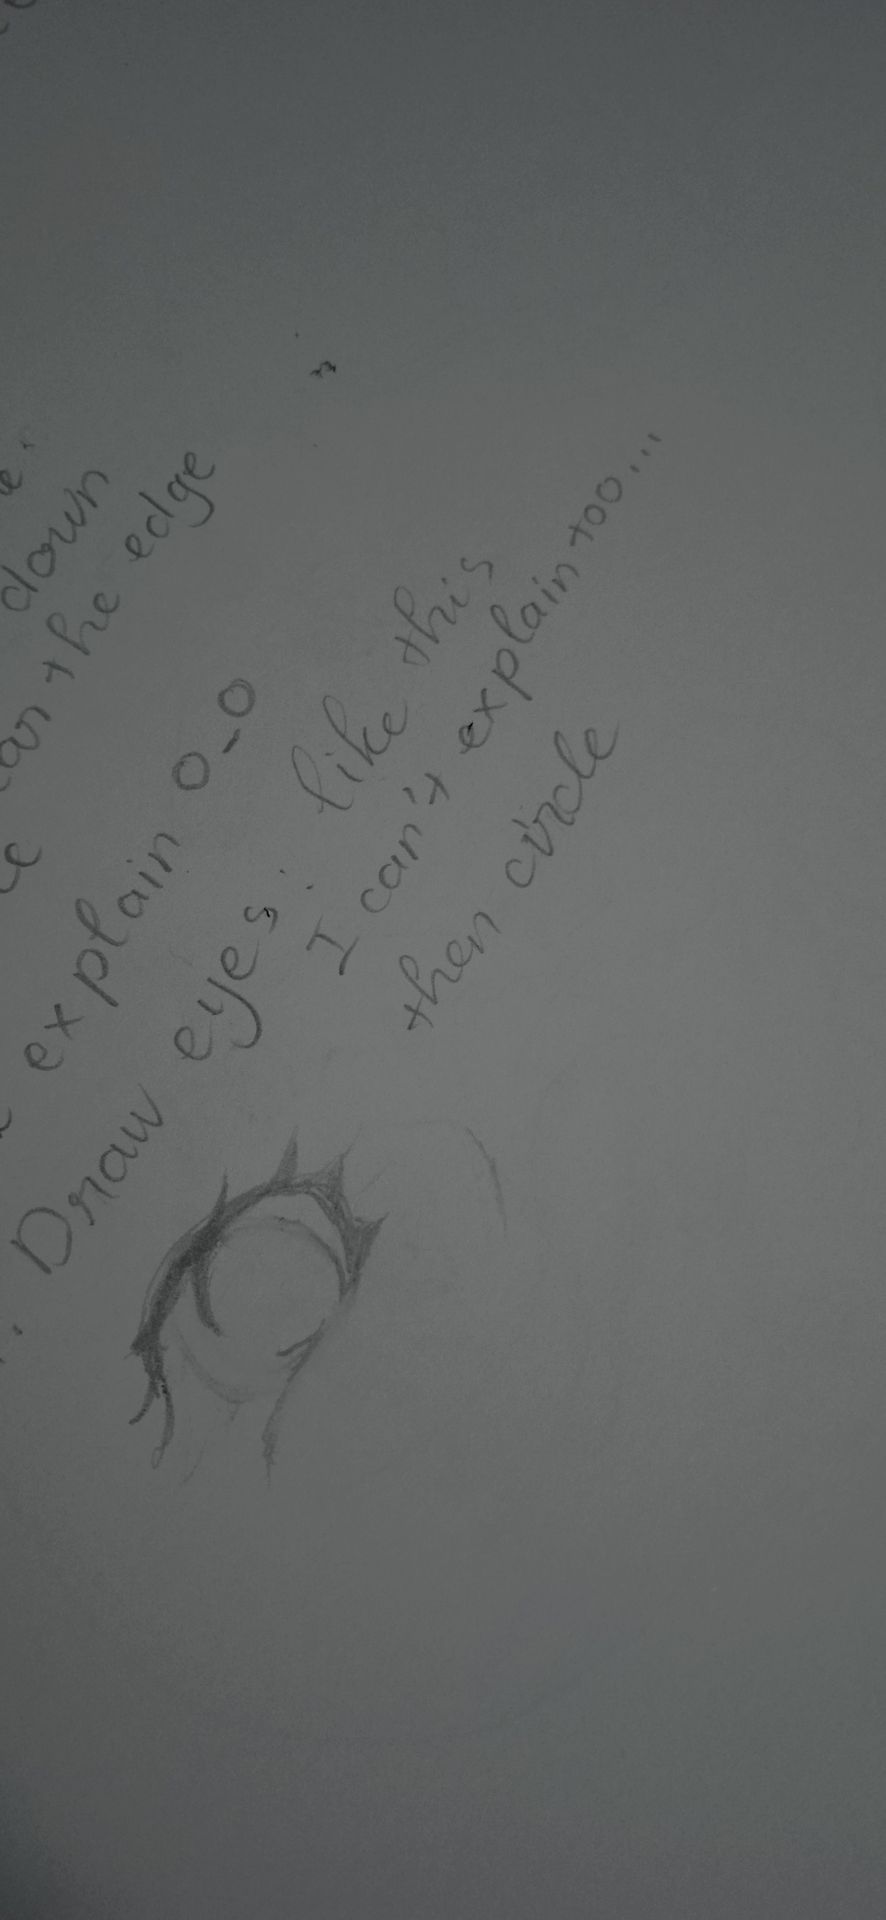 down
the edge
explain O_O
Draw eyes: like this
I can't explain too...
then circle